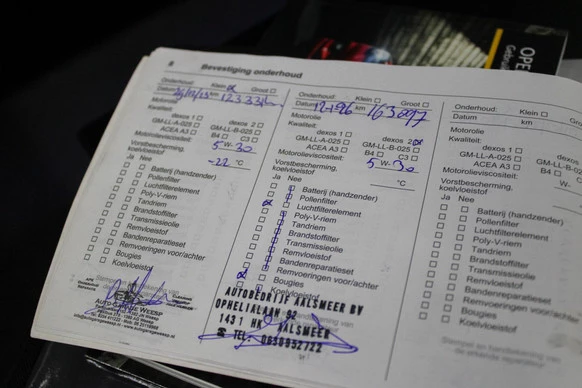 8 Bevestiging onderhoud
Onderhoud: Klein Groot
Datum km
Motorolie
Kwaliteit:
dexos 1 dexos 2
GM-LL-A-025 GM-LL-B-025
ACEA A3 B4 C3
Motorolieviscositeit: 5 W- 30
Vorstbescherming, koelvloeistof
-22 °C
Ja Nee
Batterij (handzender)
Pollenfilter
Luchtfilterelement
Poly-V-riem
Tandriem
Brandstoffilter
Transmissieolie
Remvloeistof
Bandenreparatieset
Remvoeringen voor/achter
Bougies
Koelvloeistof
Onderhoud: Klein Groot
Datum 12-1-'96 km 163097
Motorolie
Kwaliteit:
dexos 1 dexos 2
GM-LL-A-025 GM-LL-B-025
ACEA A3 B4 C3
Motorolieviscositeit: 5 W- 30
Vorstbescherming, koelvloeistof
°C
Ja Nee
Batterij (handzender)
Pollenfilter
Luchtfilterelement
Poly-V-riem
Tandriem
Brandstoffilter
Transmissieolie
Remvloeistof
Bandenreparatieset
Remvoeringen voor/achter
Bougies
Koelvloeistof
AUTOBEDRIJF AALSMEER BV
OPHELIALAAN 92
1431 HK AALSMEER
TEL:
Onderhoud: Klein
Datum km
Motorolie
Kwaliteit:
dexos 1
GM-LL-A-025 GM-LL-B-025
ACEA A3 B4
Motorolieviscositeit: W-
Vorstbescherming, koelvloeistof
Ja Nee
Batterij (handzender)
Pollenfilter
Luchtfilterelement
Poly-V-riem
Tandriem
Brandstoffilter
Transmissieolie
Remvloeistof
Bandenreparatieset
Remvoeringen voor/achter
Bougies
Koelvloeistof